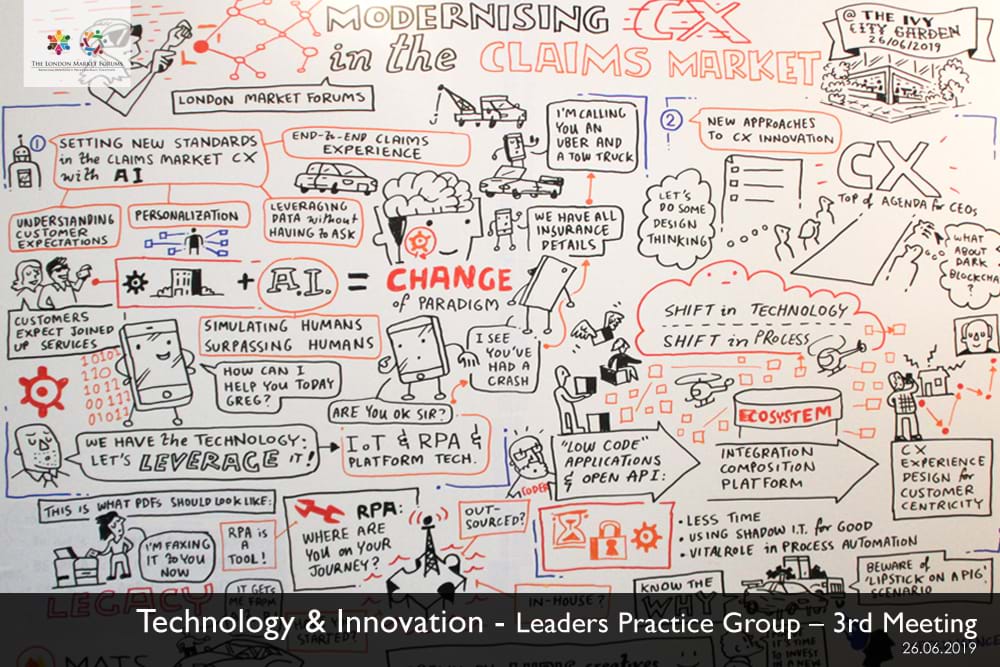 THE LONDON MARKET FORUMS
MODERNISING CX
in the CLAIMS MARKET
@ THE IVY
CITY GARDEN
26/06/2019
LONDON MARKET FORUMS
1
SETTING NEW STANDARDS
in the CLAIMS MARKET CX
with AI
END-to-END CLAIMS
EXPERIENCE
UNDERSTANDING
CUSTOMER
EXPECTATIONS
PERSONALIZATION
LEVERAGING
DATA without
HAVING to ASK
I'M CALLING
YOU AN
UBER AND
A TOW TRUCK
WE HAVE ALL
INSURANCE
DETAILS
+ A.I. = CHANGE
of PARADIGM
CUSTOMERS
EXPECT JOINED
UP SERVICES
SIMULATING HUMANS
SURPASSING HUMANS
HOW CAN I
HELP YOU TODAY
GREG?
I SEE
YOU'VE
HAD A
CRASH
ARE YOU OK SIR?
WE HAVE the TECHNOLOGY:
LET'S LEVERAGE IT!
IoT & RPA &
PLATFORM TECH.
THIS IS WHAT PDFS SHOULD LOOK LIKE:
I'M FAXING
IT TO YOU
NOW
LEGACY
RPA IS
A
TOOL!
RPA:
WHERE ARE
YOU on YOUR
JOURNEY?
OUT-
SOURCED?
IN-HOUSE?
IT GETS
ME FROM
STARTED?
2
NEW APPROACHES
TO CX INNOVATION
LET'S
DO SOME
DESIGN
THINKING
CX
TOP of AGENDA for CEOs
WHAT
ABOUT
DARK
BLOCKCHAIN?
SHIFT in TECHNOLOGY
SHIFT in PROCESS
ECOSYSTEM
CODER
"LOW CODE"
APPLICATIONS
& OPEN API:
INTEGRATION
COMPOSITION
PLATFORM
CX
EXPERIENCE
DESIGN for
CUSTOMER
CENTRICITY
• LESS TIME
• USING SHADOW I.T. for GOOD
• VITAL ROLE in PROCESS AUTOMATION
KNOW THE
WHY
BEWARE of
'LIPSTICK ON A PIG'
SCENARIO
MATS
IT'S TIME
TO INVEST
Technology & Innovation - Leaders Practice Group – 3rd Meeting
26.06.2019